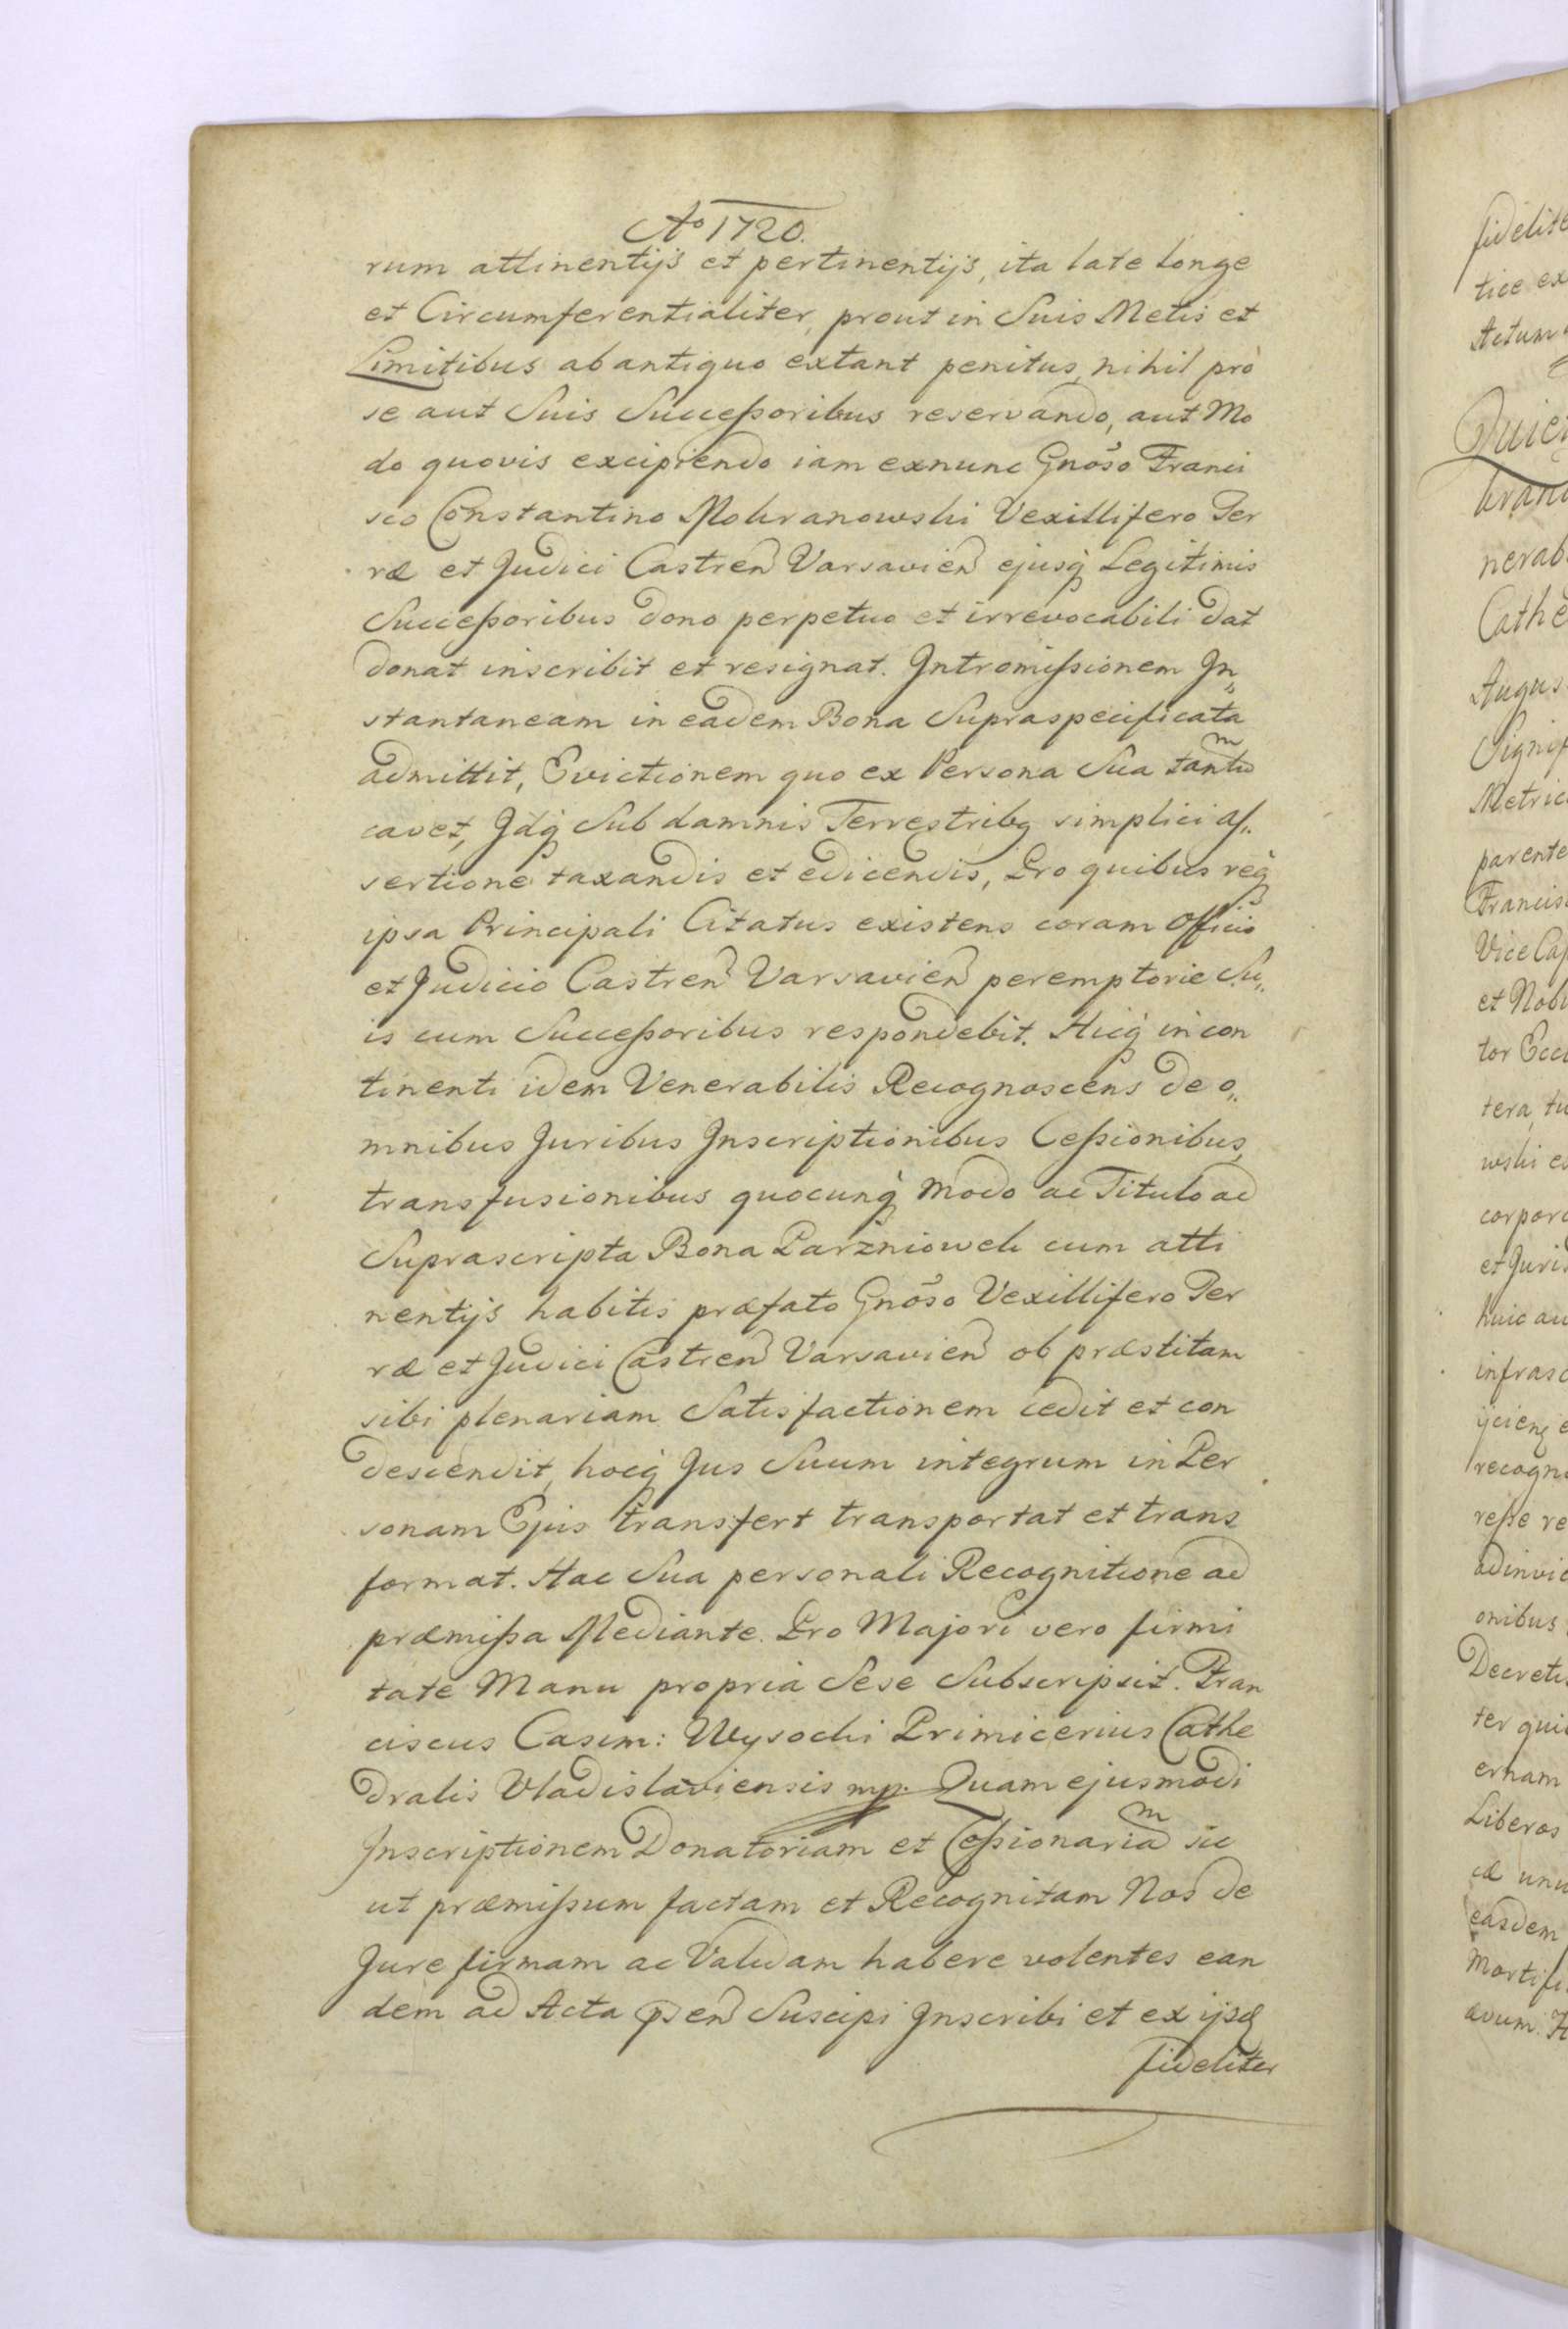 Ao 1720.
rum attinentijs et pertinentijs, ita late longe
et Circumferentialiter, prout in Suis Metis et
Limitibus ab antiquo extant penitus, nihil pro
se aut Suis Successoribus reservando, aut Mo
do quovis excipiendo iam exnunc Gnõso Franci
sco Constantino Mokranowski Vexillifero Ter
ræ et Judici Castren Varsavien ejusq́ Legitimis
Successoribus dono perpetuo et irrevocabili dat
donat inscribit et resignat. Intromissionem In„
stantaneam in eadem Bona Supraspecificata
admittit, Evictionem quo ex Persona Sua tantũ
cavet, Idq́ Sub damnis Terrestribq simplici as„
sertione taxandis et edicendis, Pro quibus req́
ipsa Principali Citatus existens coram officio
et Judicio Castren Varsavien peremptorie Su„
is cum Successoribus respondebit. Hicq́ in con
tinenti idem Venerabilis Recognoscens de o„
mnibus Juribus Inscriptionibus Cessionibus,
transfusionibus quocunq́ Modo ac Titulo ad
Suprascripta Bona Parzniowek cum atti
nentijs habitis præfato Gnõso Vexillifero Ter
ræ et Judici Castren Varsavien ob præstitam
sibi plenariam Satisfactionem cedit et con
descendit, hocq́ Jus Suum integrum in Per
sonam Ejus transfert transportat et trans
format. Hac Sua personali Recognitione ad
præmissa Mediante. Pro Majori vero firmi
tate Manu propria Sese Subscripsit. Fran
ciscus Casim: Wysocki Primicerius Cathe
dralis Vladislaviensis mp. Quam ejusmodi
Inscriptionem Donatoriam et Cessionariam sic
ut præmissum factam et Recognitam Nos de
Jure firmam ac Validam habere volentes ean
dem ad Acta pñen Suscipi Inscribi et ex ijsd
fideliter
fidelite
tice ex
Actum
Quie
kran
nerab
Cathe
Augus
Signif
Metric
parente
Francis
Vice Cap
et Nobi
tor Eccl
tera, tu
wski
corpor
et Juris
huic au
infrasc
recogn
resse re
adinvic
onibus
Decreti
ter qui
ernam
Liberos
easdem
Mortifi
ævum. H